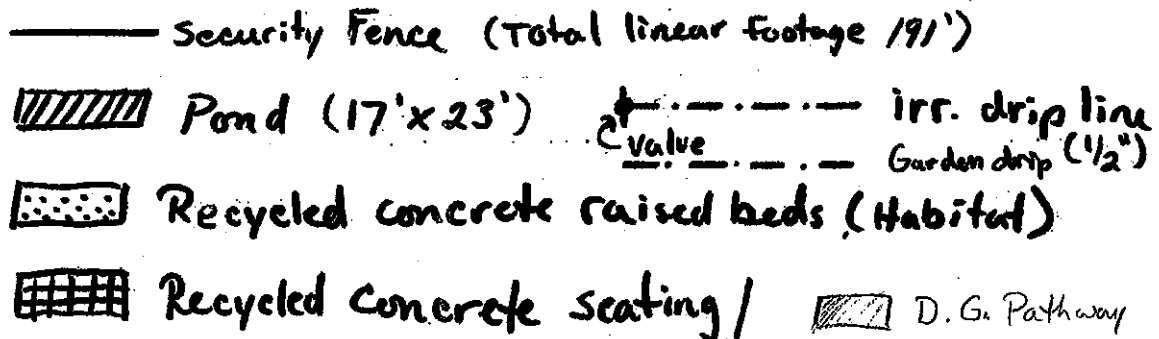 Security Fence (Total linear footage 191')
Pond (17'x23')
irr. drip line
value
Garden drip (1/2")
Recycled concrete raised beds (Habitat)
Recycled Concrete seating/
D.G. Pathway